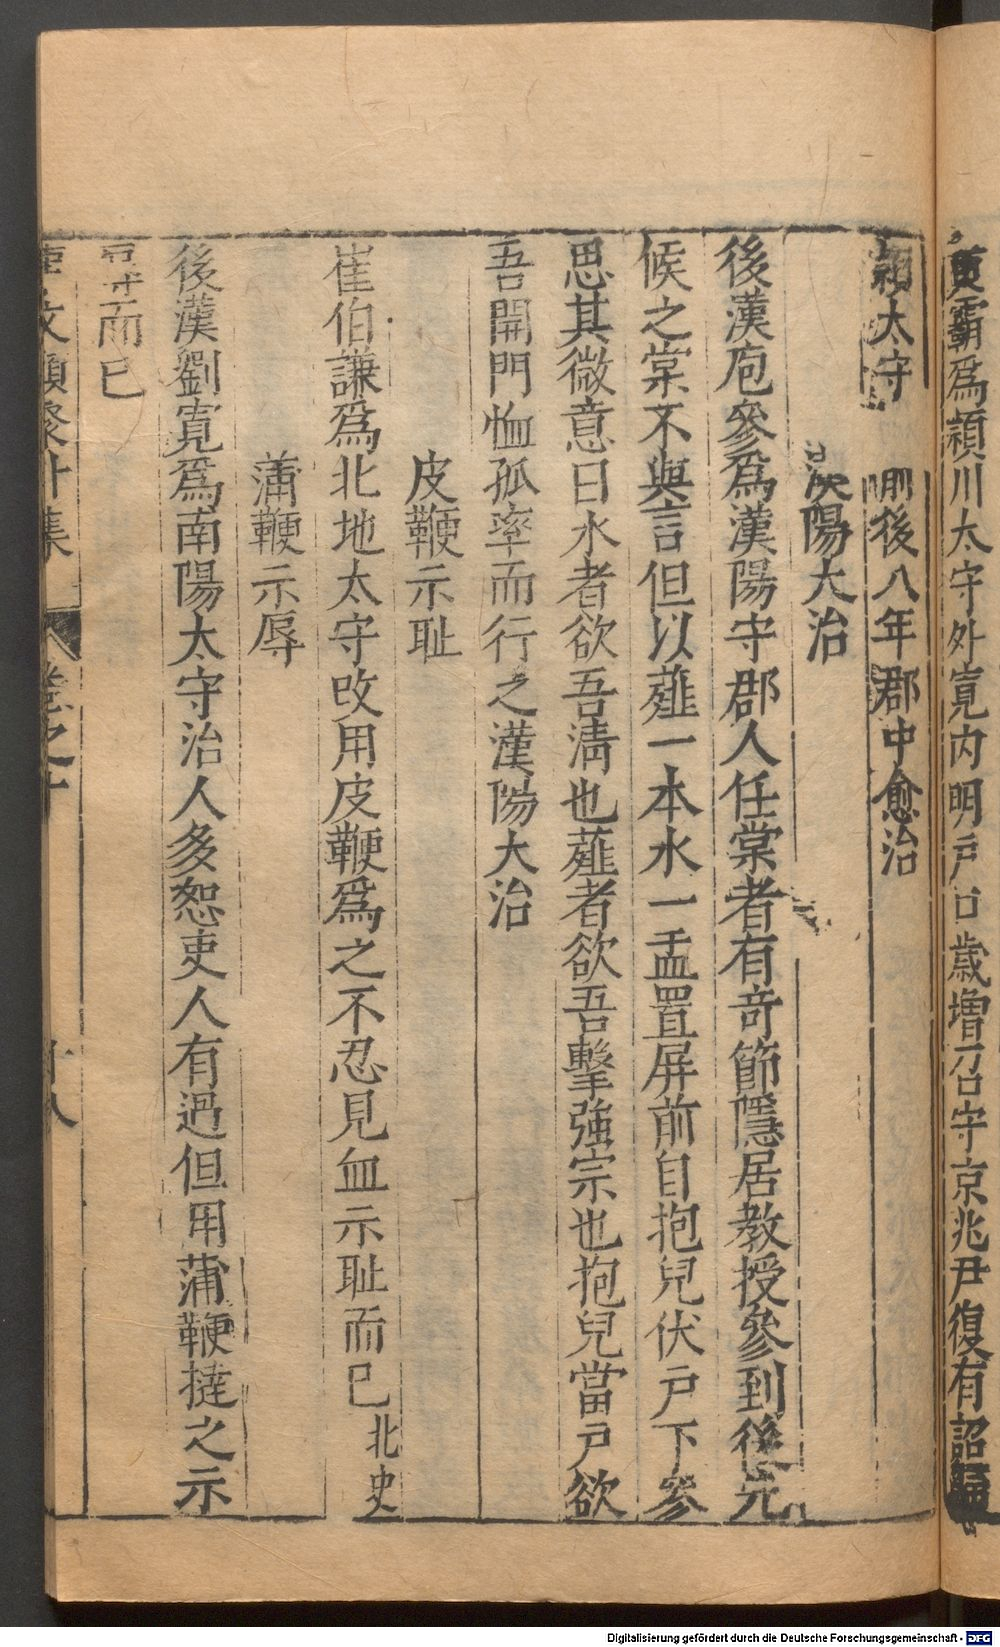 黄霸爲頴川太守外寛内明戸口歳増召守京兆尹復有詔歸
頴太守　　前後八年郡中愈治
漢陽大治
後漢龐參爲漢陽守郡人任棠者有竒節隱居教授參到後元
候之棠不與言但以薤一本水一盂置屏前自抱兒伏戸下參
思其微意曰水者欲吾清也薤者欲吾擊強宗也抱兒當戸欲
吾開門恤孤率而行之漢陽大治
皮鞭示耻
崔伯謙爲北地太守改用皮鞭爲之不忍見血示耻而已北史
蒲鞭示辱
後漢劉寛爲南陽太守治人多恕吏人有過但用蒲鞭撻之示
辱而已
事文類聚外集　卷之十　十八
Digitalisierung gefördert durch die Deutsche Forschungsgemeinschaft - DFG